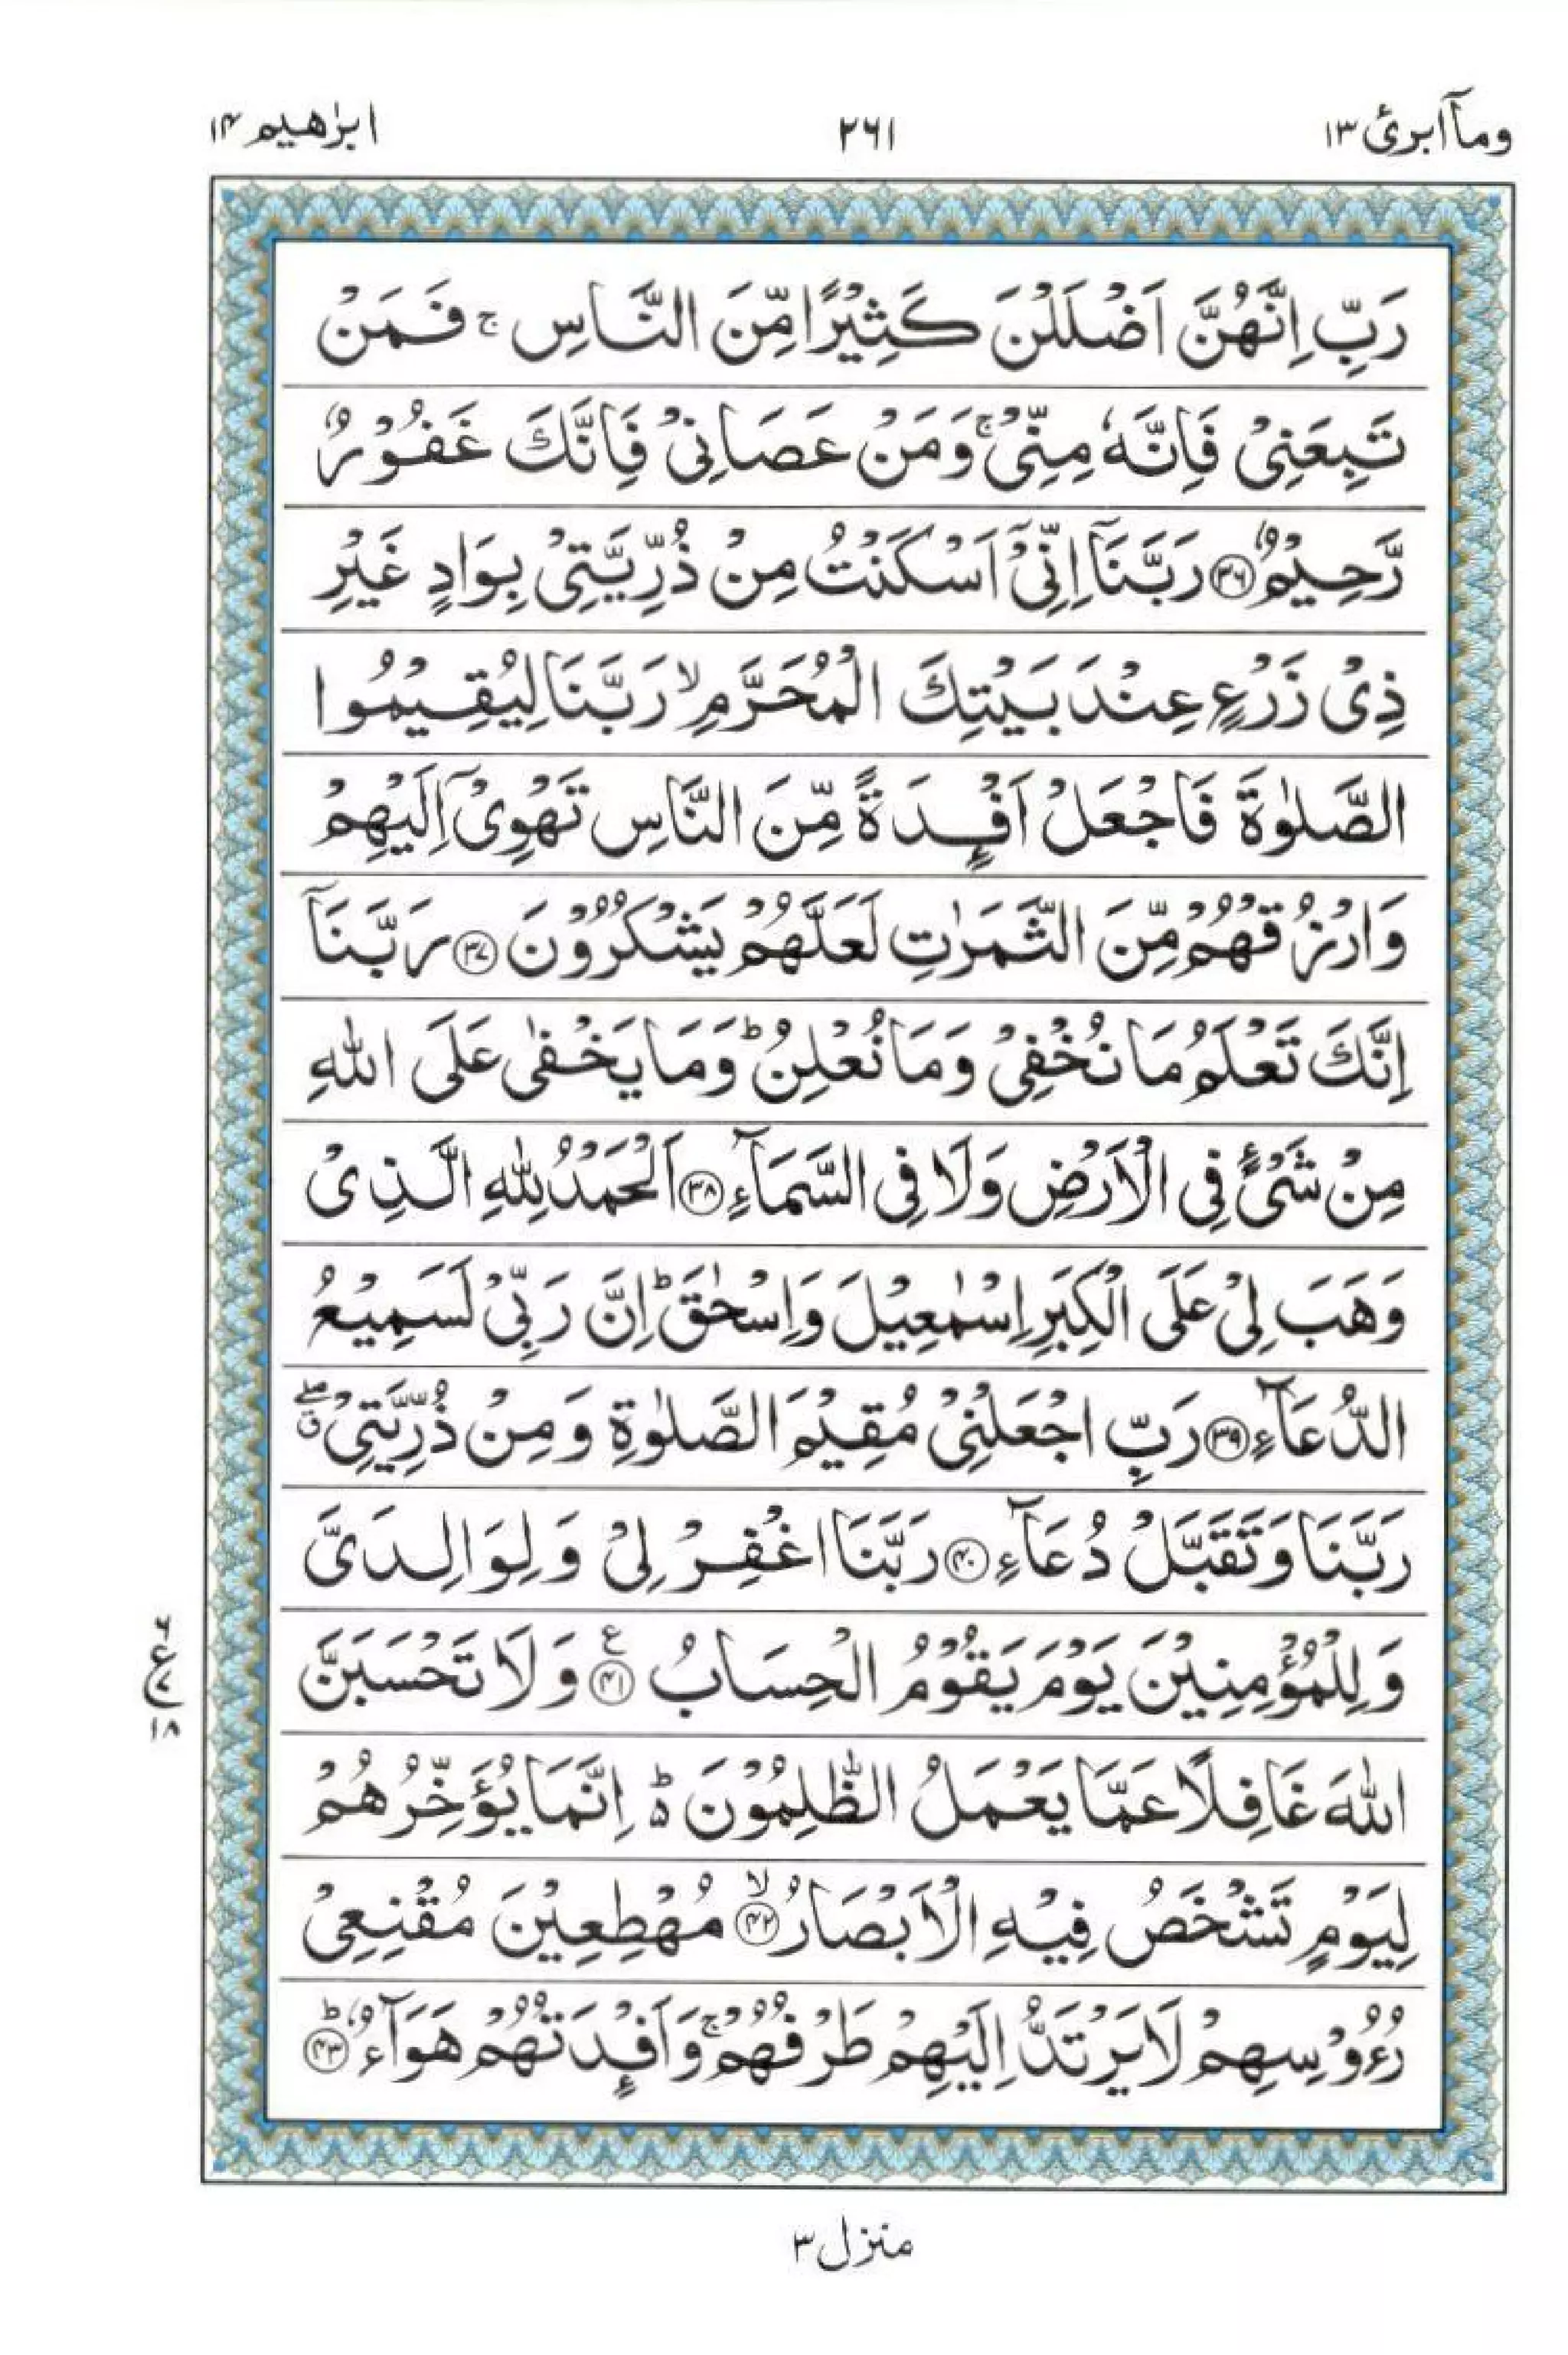 ومآ ابرئ ١٣
٢٦١
ابرٰهيم ١۴
رَبِّ اِنَّهُنَّ اَضْلَلْنَ كَثِيْرًا مِّنَ النَّاسِ ۚ فَمَنْ
تَبِعَنِىْ فَاِنَّهٗ مِنِّىْ ۚ وَمَنْ عَصَانِىْ فَاِنَّكَ غَفُوْرٌ
رَّحِيْمٌ ﴿۳۶﴾ رَبَّنَاۤ اِنِّىْۤ اَسْكَنْتُ مِنْ ذُرِّيَّتِىْ بِوَادٍ غَيْرِ
ذِىْ زَرْعٍ عِنْدَ بَيْتِكَ الْمُحَرَّمِ ۙ رَبَّنَا لِيُقِيْمُوا
الصَّلٰوةَ فَاجْعَلْ اَفْـِٕدَةً مِّنَ النَّاسِ تَهْوِىْۤ اِلَيْهِمْ
وَارْزُقْهُمْ مِّنَ الثَّمَرٰتِ لَعَلَّهُمْ يَشْكُرُوْنَ ﴿۳۷﴾ رَبَّنَاۤ
اِنَّكَ تَعْلَمُ مَا نُخْفِىْ وَمَا نُعْلِنُ ؕ وَمَا يَخْفٰى عَلَى اللّٰهِ
مِنْ شَىْءٍ فِى الْاَرْضِ وَلَا فِى السَّمَآءِ ﴿۳۸﴾ اَلْحَمْدُ لِلّٰهِ الَّذِىْ
وَهَبَ لِىْ عَلَى الْكِبَرِ اِسْمٰعِيْلَ وَاِسْحٰقَ ؕ اِنَّ رَبِّىْ لَسَمِيْعُ
الدُّعَآءِ ﴿۳۹﴾ رَبِّ اجْعَلْنِىْ مُقِيْمَ الصَّلٰوةِ وَمِنْ ذُرِّيَّتِىْ ۖق
رَبَّنَا وَتَقَبَّلْ دُعَآءِ ﴿۴۰﴾ رَبَّنَا اغْفِرْ لِىْ وَلِوَالِدَىَّ
وَلِلْمُؤْمِنِيْنَ يَوْمَ يَقُوْمُ الْحِسَابُ ﴿۴۱﴾ ع وَلَا تَحْسَبَنَّ
اللّٰهَ غَافِلًا عَمَّا يَعْمَلُ الظّٰلِمُوْنَ ؕ۬ اِنَّمَا يُؤَخِّرُهُمْ
لِيَوْمٍ تَشْخَصُ فِيْهِ الْاَبْصَارُ ۙ﴿۴۲﴾ مُهْطِعِيْنَ مُقْنِعِىْ
رُءُوْسِهِمْ لَا يَرْتَدُّ اِلَيْهِمْ طَرْفُهُمْ ۚ وَاَفْـِٕدَتُهُمْ هَوَآءٌ ؕ﴿۴۳﴾
ع
٧
١٨
منزل ٣